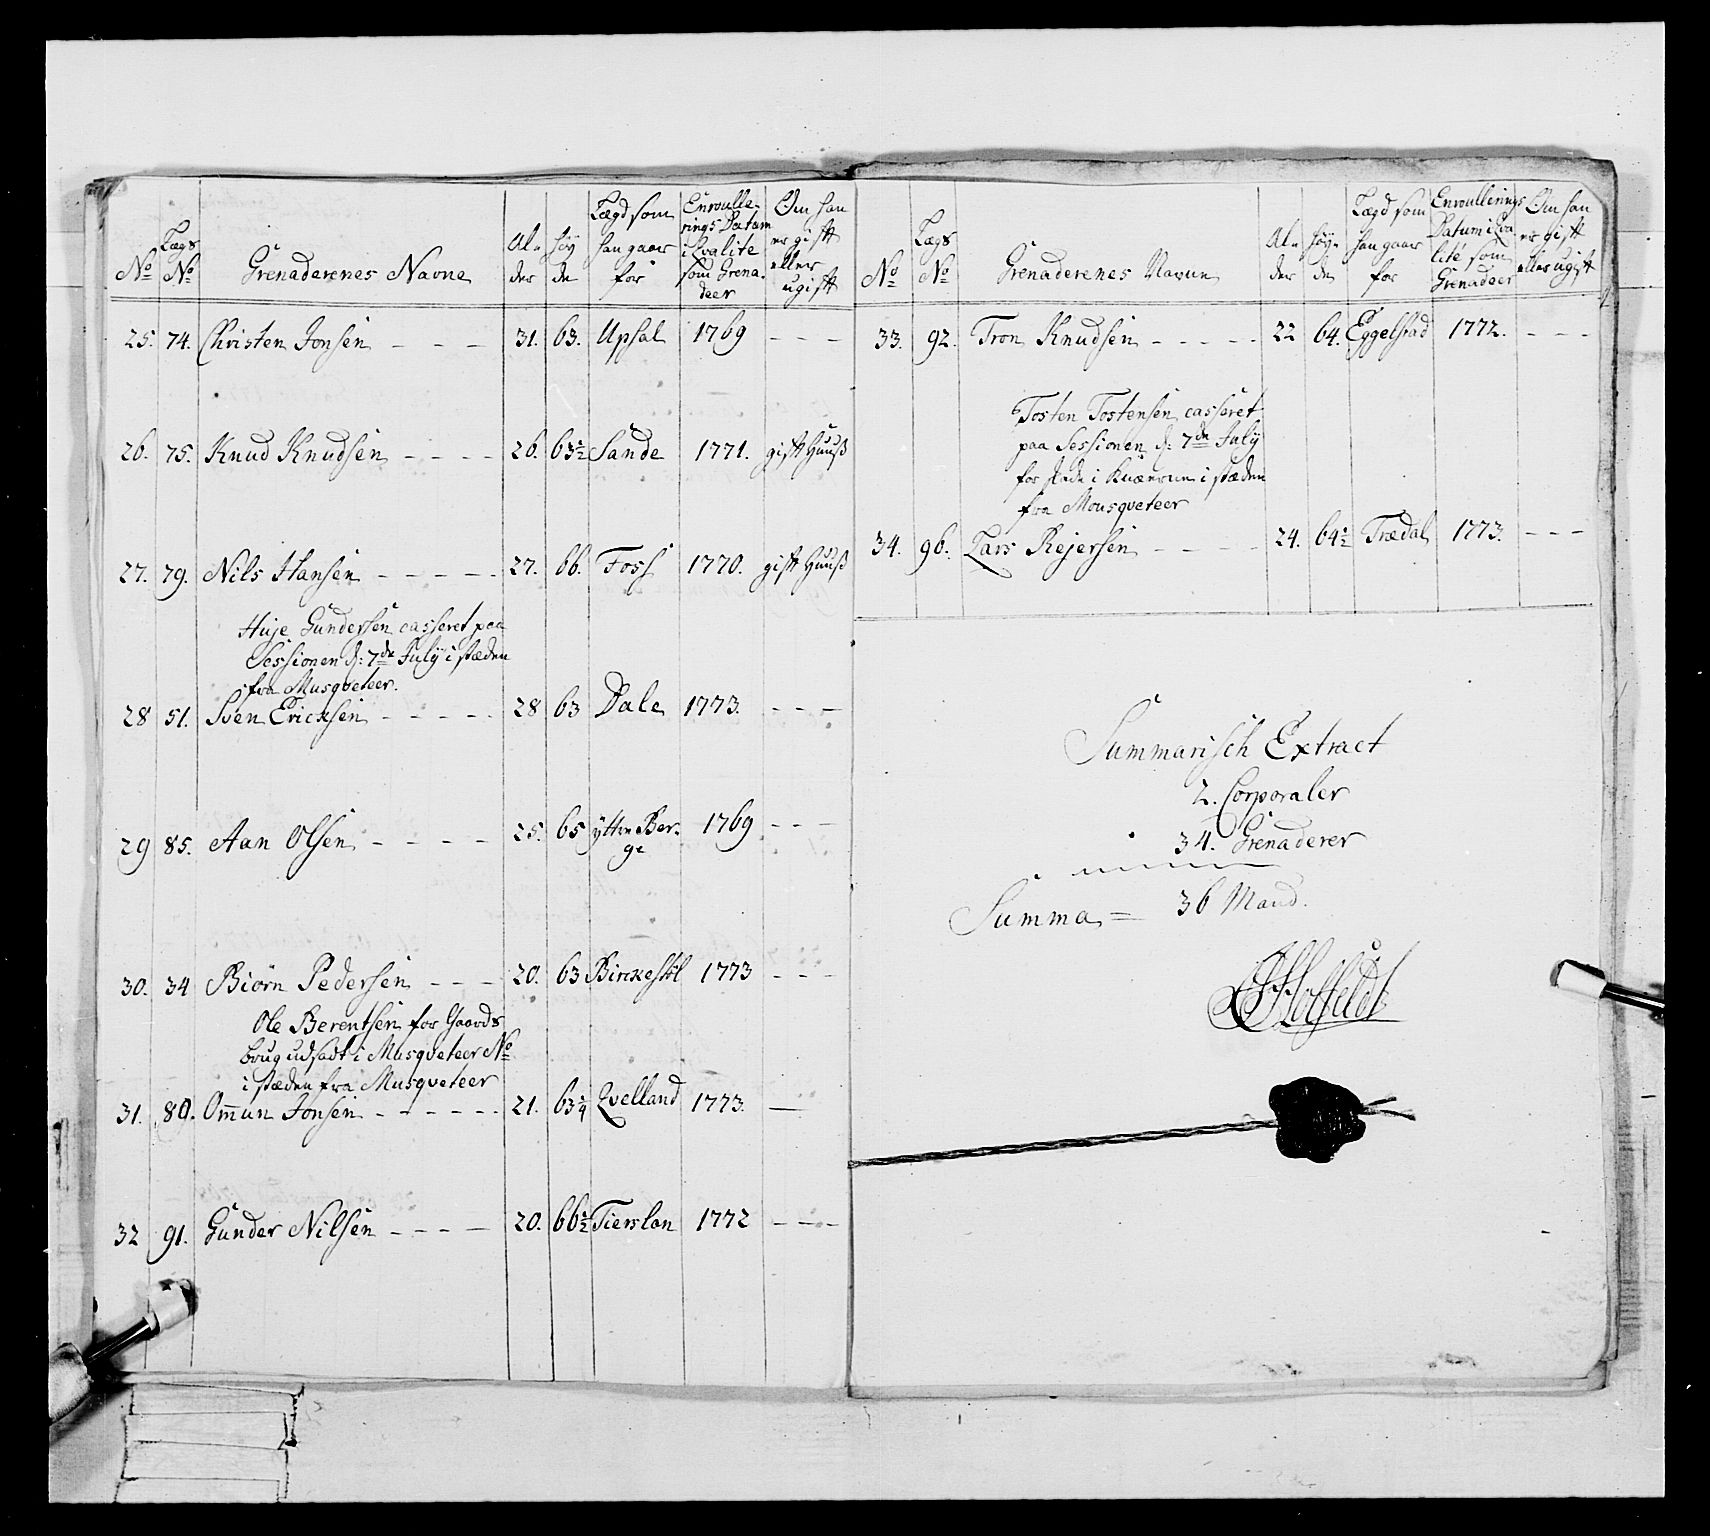 No Lægs No Grenaderenes Navne Alder Høyde Lægd som han gaar for Enroullerings Datum i Qvalite som Grenadeer Om han er gift eller ugift
25. 74. Christen Jonsen - - - 31. 63. Upsal 1769 - - -
26. 75. Knud Knudsen - - - - 26. 63½ Sande 1771. gift Huuß
27. 79. Nils Hansen - - - - - 27. 66. Foss 1770. gift Huuß
Huje Gundersen casseret paa
Sessionen d: 7de July i stæden
fra Musqveteer.
28 51. Sven Ericksen - - - - - 28 63 Dale 1773. - - -
29 85. Aan Olsen - - - - 25. 65 ytte Berge 1769 - - -
30. 34 Biörn Pedersen - - - 20. 63 Birkestøl 1773 - - -
Ole Berentsen for Gaards
brug udsadt i Musqveteer No
i stæden fra Musqveteer
31. 80. Om̄un Jonsen - - - - - - 21. 63¼ Qvelland 1773. —
32 91. Gunder Nilsen - - - - 20. 66½ Tierslan 1772 - - -
No Lægs No Grenaderenes Navne Alder Høyde Lægd som han gaar for Enroullerings Datum i Qvalité som Grenadeer Om han er gift eller ugift
33. 92. Tron Knudsen - - - - - 22 64. Eggelstad 1772. - - -
Tosten Tostensen casseret
paa Sessionen d: 7de July
for skade i Knæerne i stæden
fra Mousqveteer
34. 96. Lars Rejersen - - - - 24. 64½ Trædal 1773. - - -
Summarisch Extract
2. Corporaler
34. Grenaderer
Summa = 36 Mand.